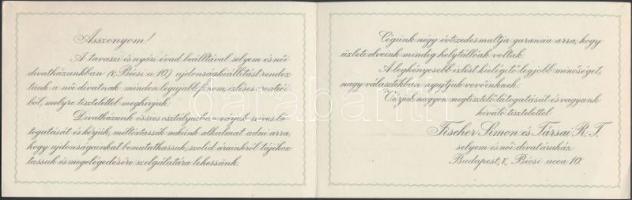 Asszonyom!
A tavaszi és nyári évad beálltával selyem és női
divatházunkban (V. Bécsi u. 10) ujdonságkiállitást rendez
tünk a női divatnak minden legujabb, finom, izléses cikkei
ből, melyre tisztelettel meghivjuk.
Divatházunk összes osztályaiban várjuk szives lá-
togatását és kérjük, méltóztassék nekünk alkalmat adni arra,
hogy ujdonságainkat bemutathassuk, szolid árainkról tájékoz-
tassuk és megelégedésére szolgálatára lehessünk.
Cégünk négy évtizedes multja garancia arra, hogy
üzletelveink mindig helytállóak voltak.
A legkényesebb izlést kielégitő legjobb minőséget,
nagy választékban nyujtjuk vevőinknek.
Várjuk nagyon megtisztelő látogatását és vagyunk
kiváló tisztelettel
Fischer Simon és Társai R.T.
selyem és női divatáruház
Budapest, V., Bécsi ucca 10.